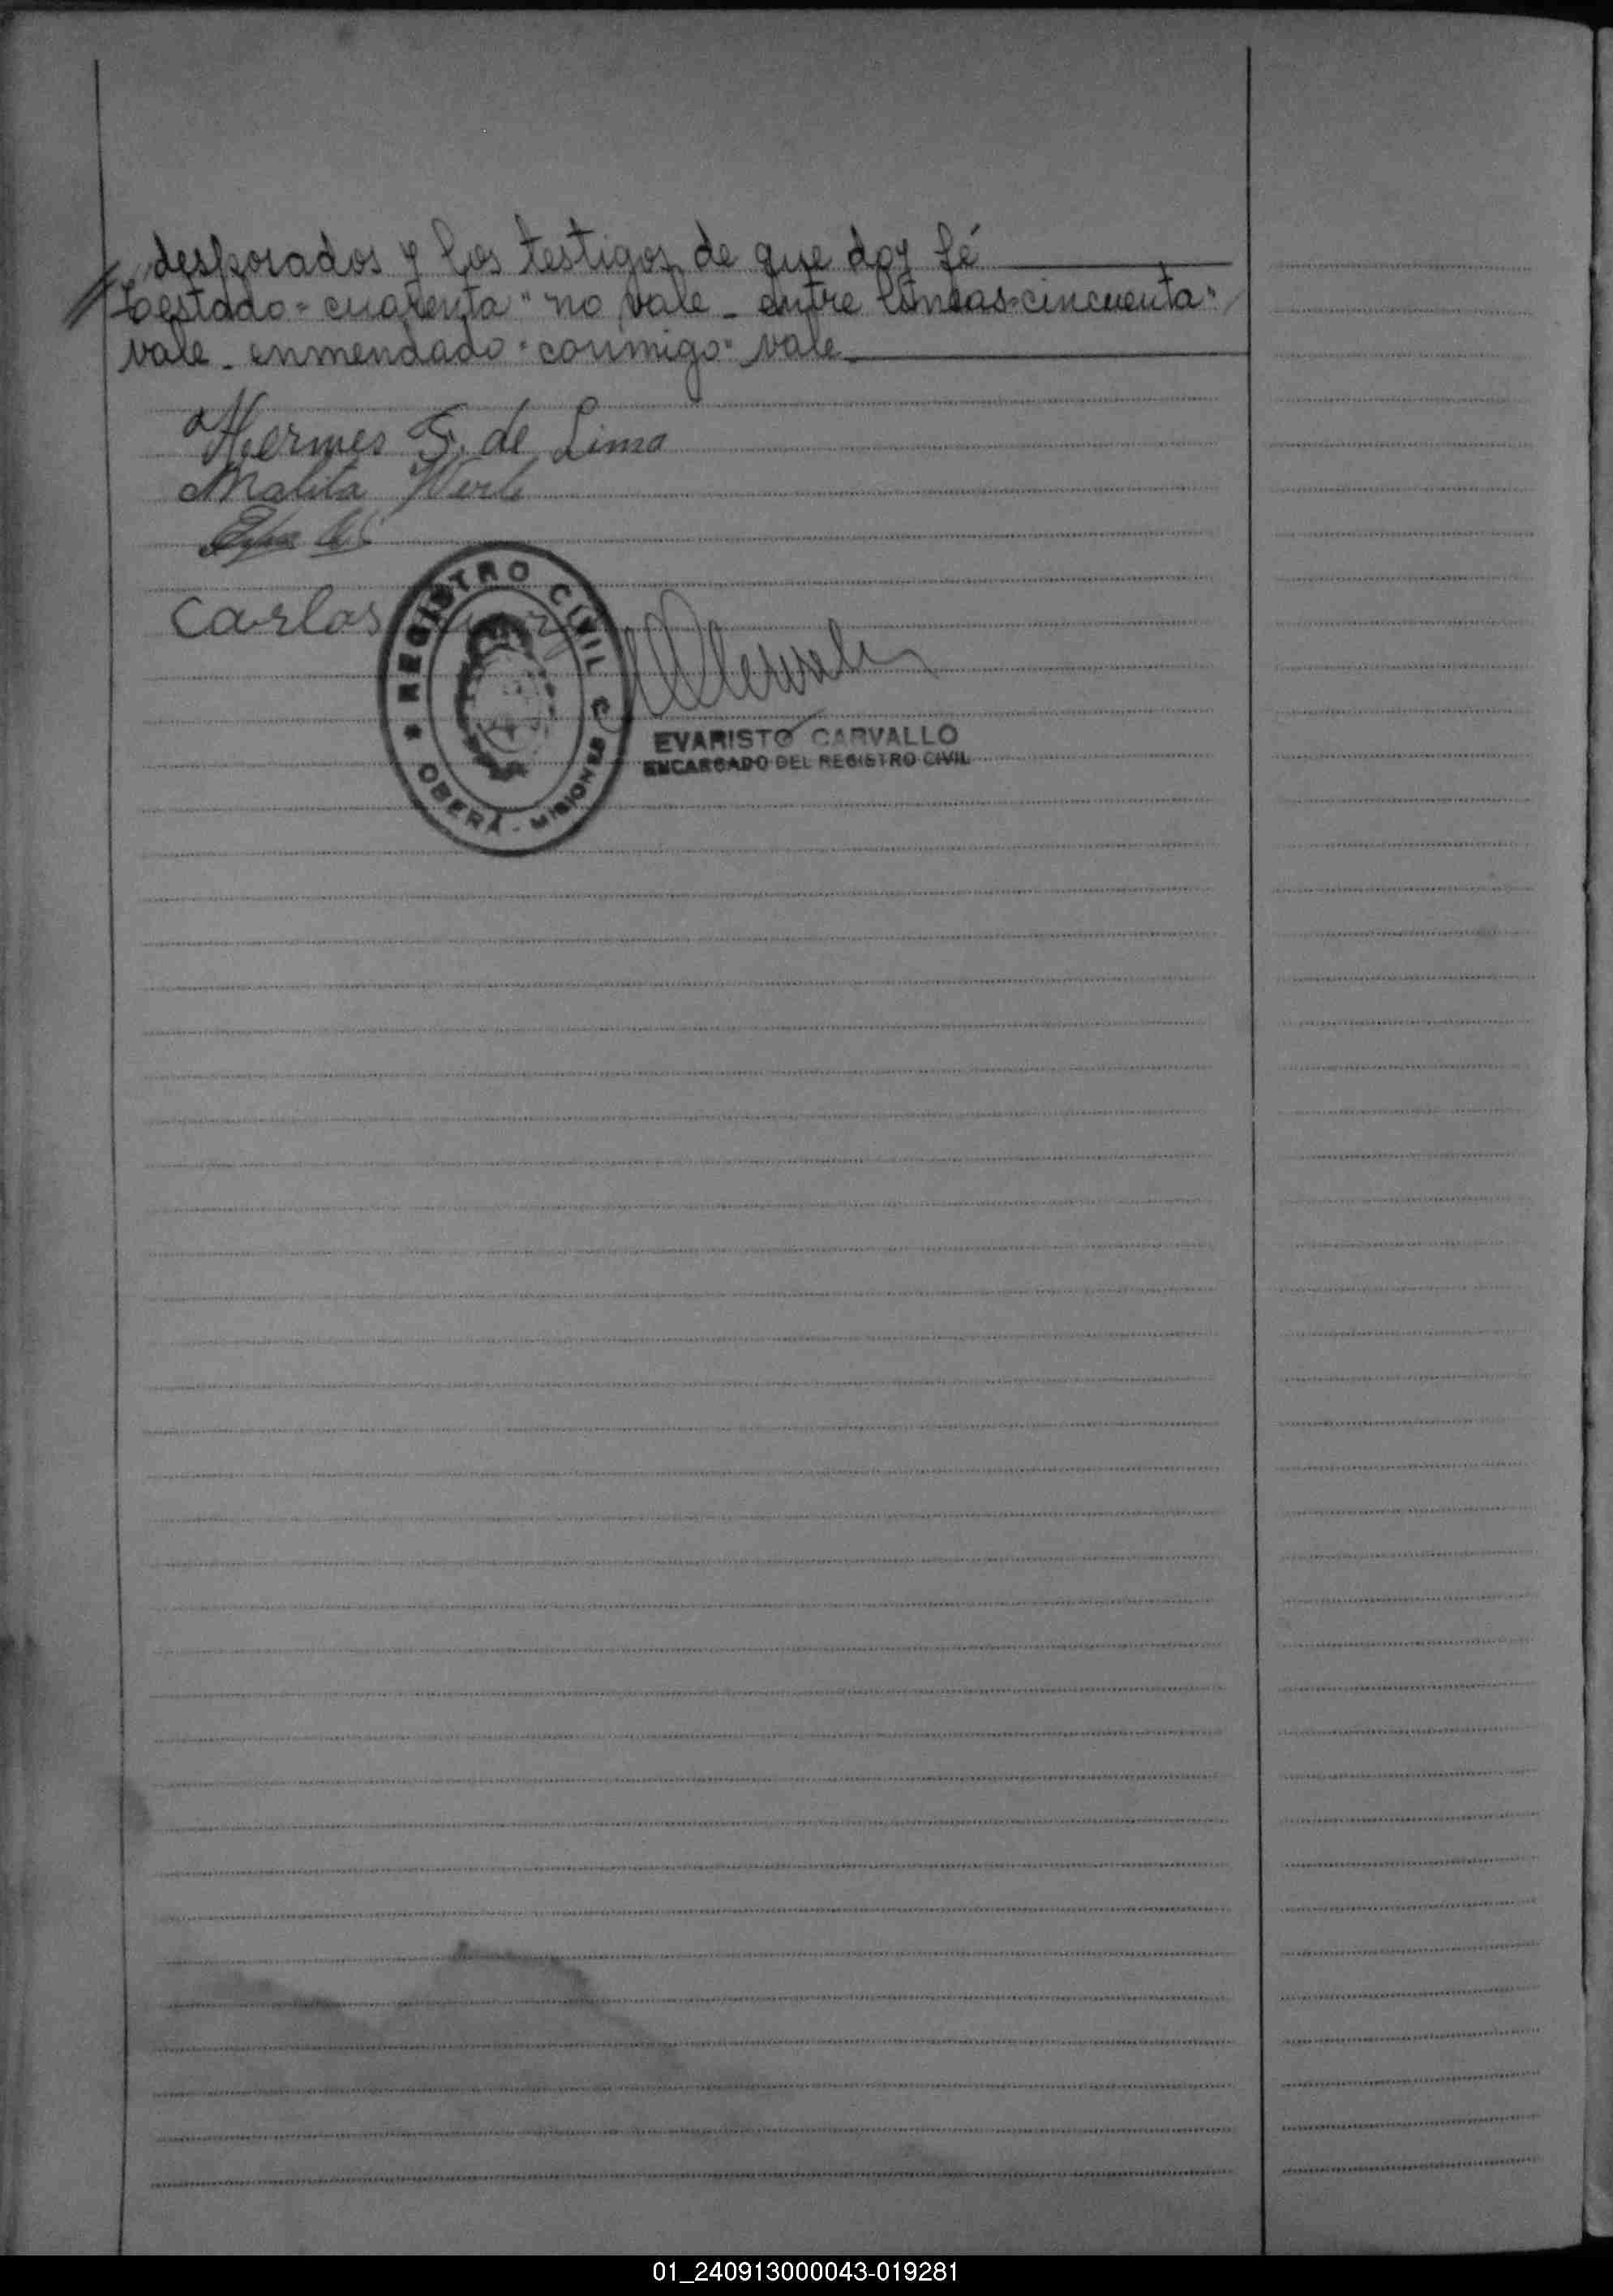 desposados y los testigos de que doy fé
Testado "cuarenta" no vale - entre líneas "cincuenta"
vale - enmendado "conmigo" vale
Hermes S. de Lima
Malita
Carlos
REGISTRO CIVIL
OBERA - MISIONES
EVARISTO CARVALLO
ENCARGADO DEL REGISTRO CIVIL
01_240913000043-019281